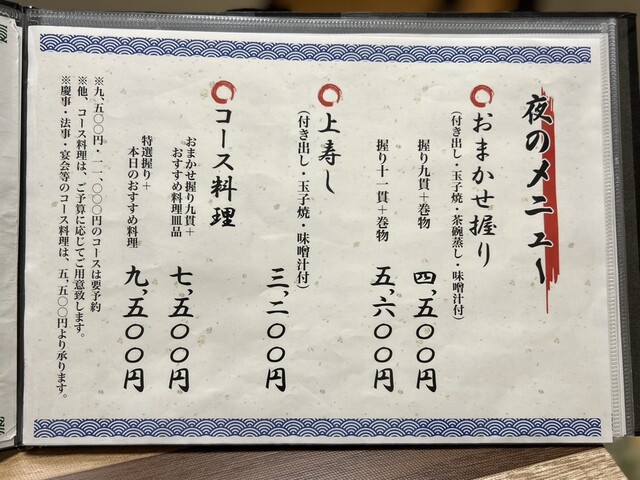 夜のメニュー
おまかせ握り
(付き出し・玉子焼・茶碗蒸し・味噌汁付)
握り九貫＋巻物 四,五〇〇円
握り十一貫＋巻物 五,六〇〇円
上寿し
(付き出し・玉子焼・味噌汁付) 三,二〇〇円
コース料理
おまかせ握り九貫＋
おすすめ料理皿品 七,五〇〇円
特選握り＋
本日のおすすめ料理 九,五〇〇円
※九、五〇〇円・一一、〇〇〇円のコースは要予約
※他、コース料理は、ご予算に応じてご用意致します。
※慶事・法事・宴会等のコース料理は、五、五〇〇円より承ります。